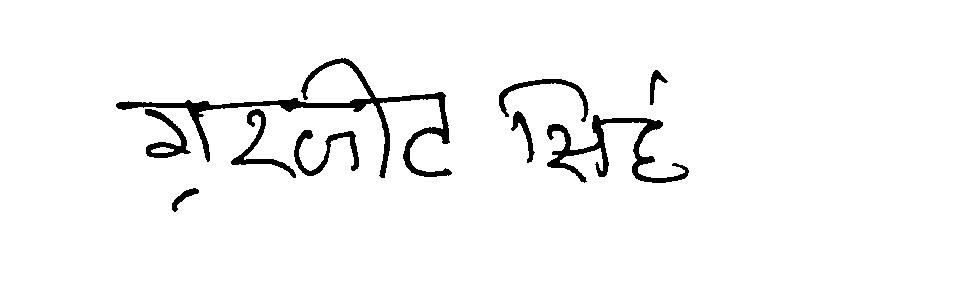 गुरजीट सिंह